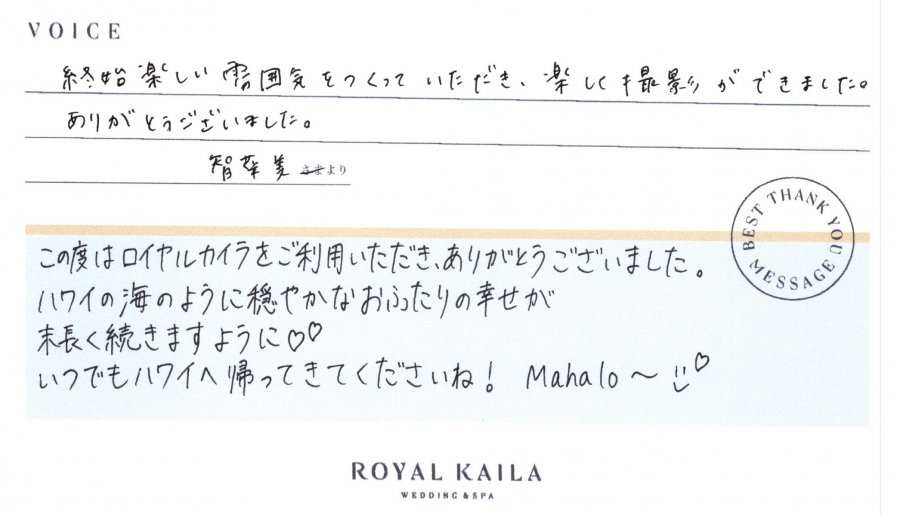 VOICE
終始楽しい雰囲気をつくっていただき、楽しく撮影ができました。
ありがとうございました。
智菜美さまより
BEST THANK YOU MESSAGE
この度はロイヤルカイラをご利用いただき、ありがとうございました。
ハワイの海のように穏やかなおふたりの幸せが
末長く続きますように♡♡
いつでもハワイへ帰ってきてくださいね! Mahalo〜
ROYAL KAILA
WEDDING & SPA